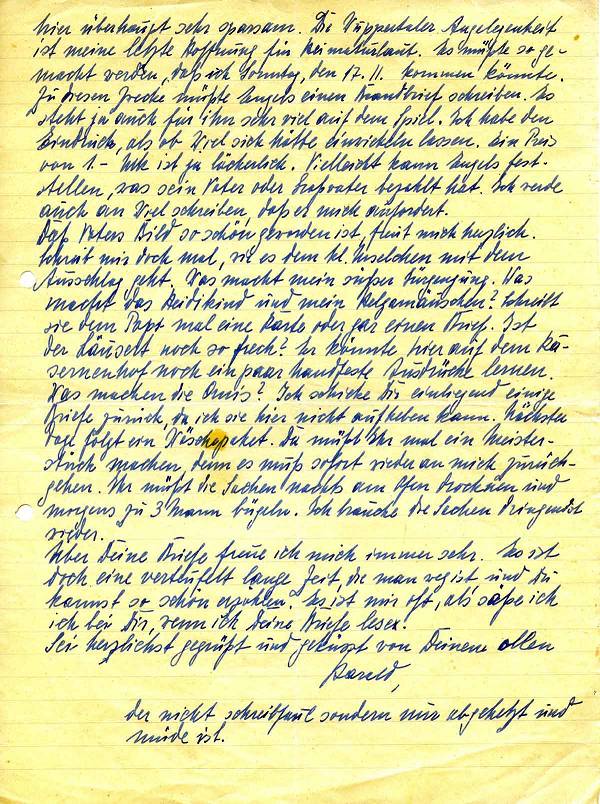 hier überhaupt sehr sparsam. Die Wuppertaler Angelegenheit
ist meine letzte Hoffnung für Heimaturlaub. Es müßte so ge-
macht werden, daß ich Sonntag, den 17. 11. kommen könnte.
Zu diesem Zwecke müßte Engels einen Brandbrief schreiben. Es
steht ja auch für ihn sehr viel auf dem Spiel. Ich habe den
Eindruck, als ob Wiel sich hätte einwickeln lassen. Ein Preis
von 1.- Mk ist ja lächerlich. Vielleicht kann Engels fest-
stellen, was sein Vater oder Großvater bezahlt hat. Ich werde
auch an Wiel schreiben, daß er mich anfordert.
Daß Vaters Bild so schön geworden ist, freut mich herzlich.
Schreib mir doch mal, wie es dem kl. Inselchen mit dem
Ausschlag geht. Was macht mein süßer Was
macht das Heidikind und mein Helgamäuschen? Schreibt
sie dem Papi mal eine Karte oder gar einen Brief. Ist
der noch so frech? Er könnte hier auf dem Ka-
sernenhof noch ein paar handfeste Ausdrücke lernen.
Was machen die Omis? Ich schicke Dir einliegend einige
Briefe zurück, da ich sie hier nicht aufheben kann. Nächster
Tage folgt ein Wäschepaket. Da müßt Ihr mal ein Meister-
stück machen, denn es muß sofort wieder an mich zurück-
gehen. Ihr müßt die Sachen nachts am Ofen trocknen und
morgens zu 3 Mann bügeln. Ich brauche die Sachen dringendst
wieder.
Über Deine Briefe freue ich mich immer sehr. Es ist
doch eine verteufelt lange Zeit, die man weg ist und Du
kannst so schön erzählen. Es ist mir oft, als säße ich
ich bei Dir, wenn ich Deine Briefe lese.
Sei herzlichst gegrüßt und geküsst von Deinem ollen
Harald,
der nicht schreibfaul sondern nur abgehetzt und
müde ist.